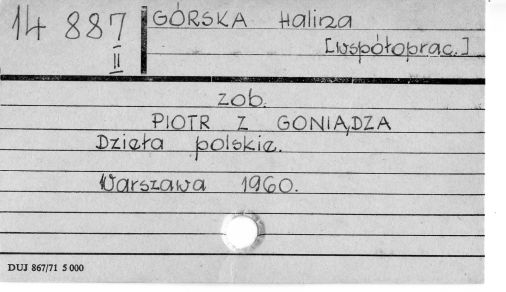 14 887 II
GÓRSKA Halina
[współoprac.]
zob.
PIOTR Z GONIĄDZA
Dzieła polskie.
Warszawa 1960.
DUJ 867/71 5 000